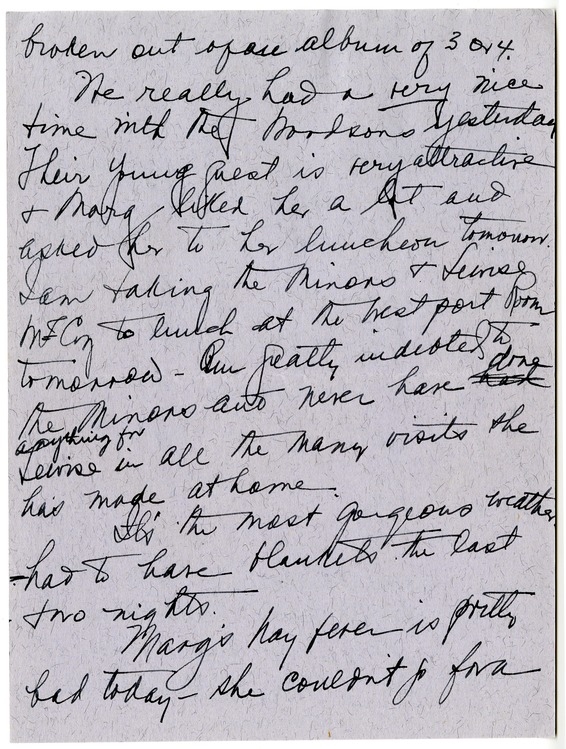 broken out of an album of 3 or 4.
We really had a very nice
time with the Woodsons yesterday
Their young guest is very attractive
& Marg liked her a lot and
asked her to her luncheon tomorrow.
I am taking the Minors &
McCoy to lunch at the West port Room
tomorrow – Am greatly indebted to
the Minors and never have had done
anything for
in all the many visits she
has made at home.
It's the most gorgeous weather
– had to have blankets the last
two nights.
Marg's hay fever is pretty
bad today – she couldn't go for a